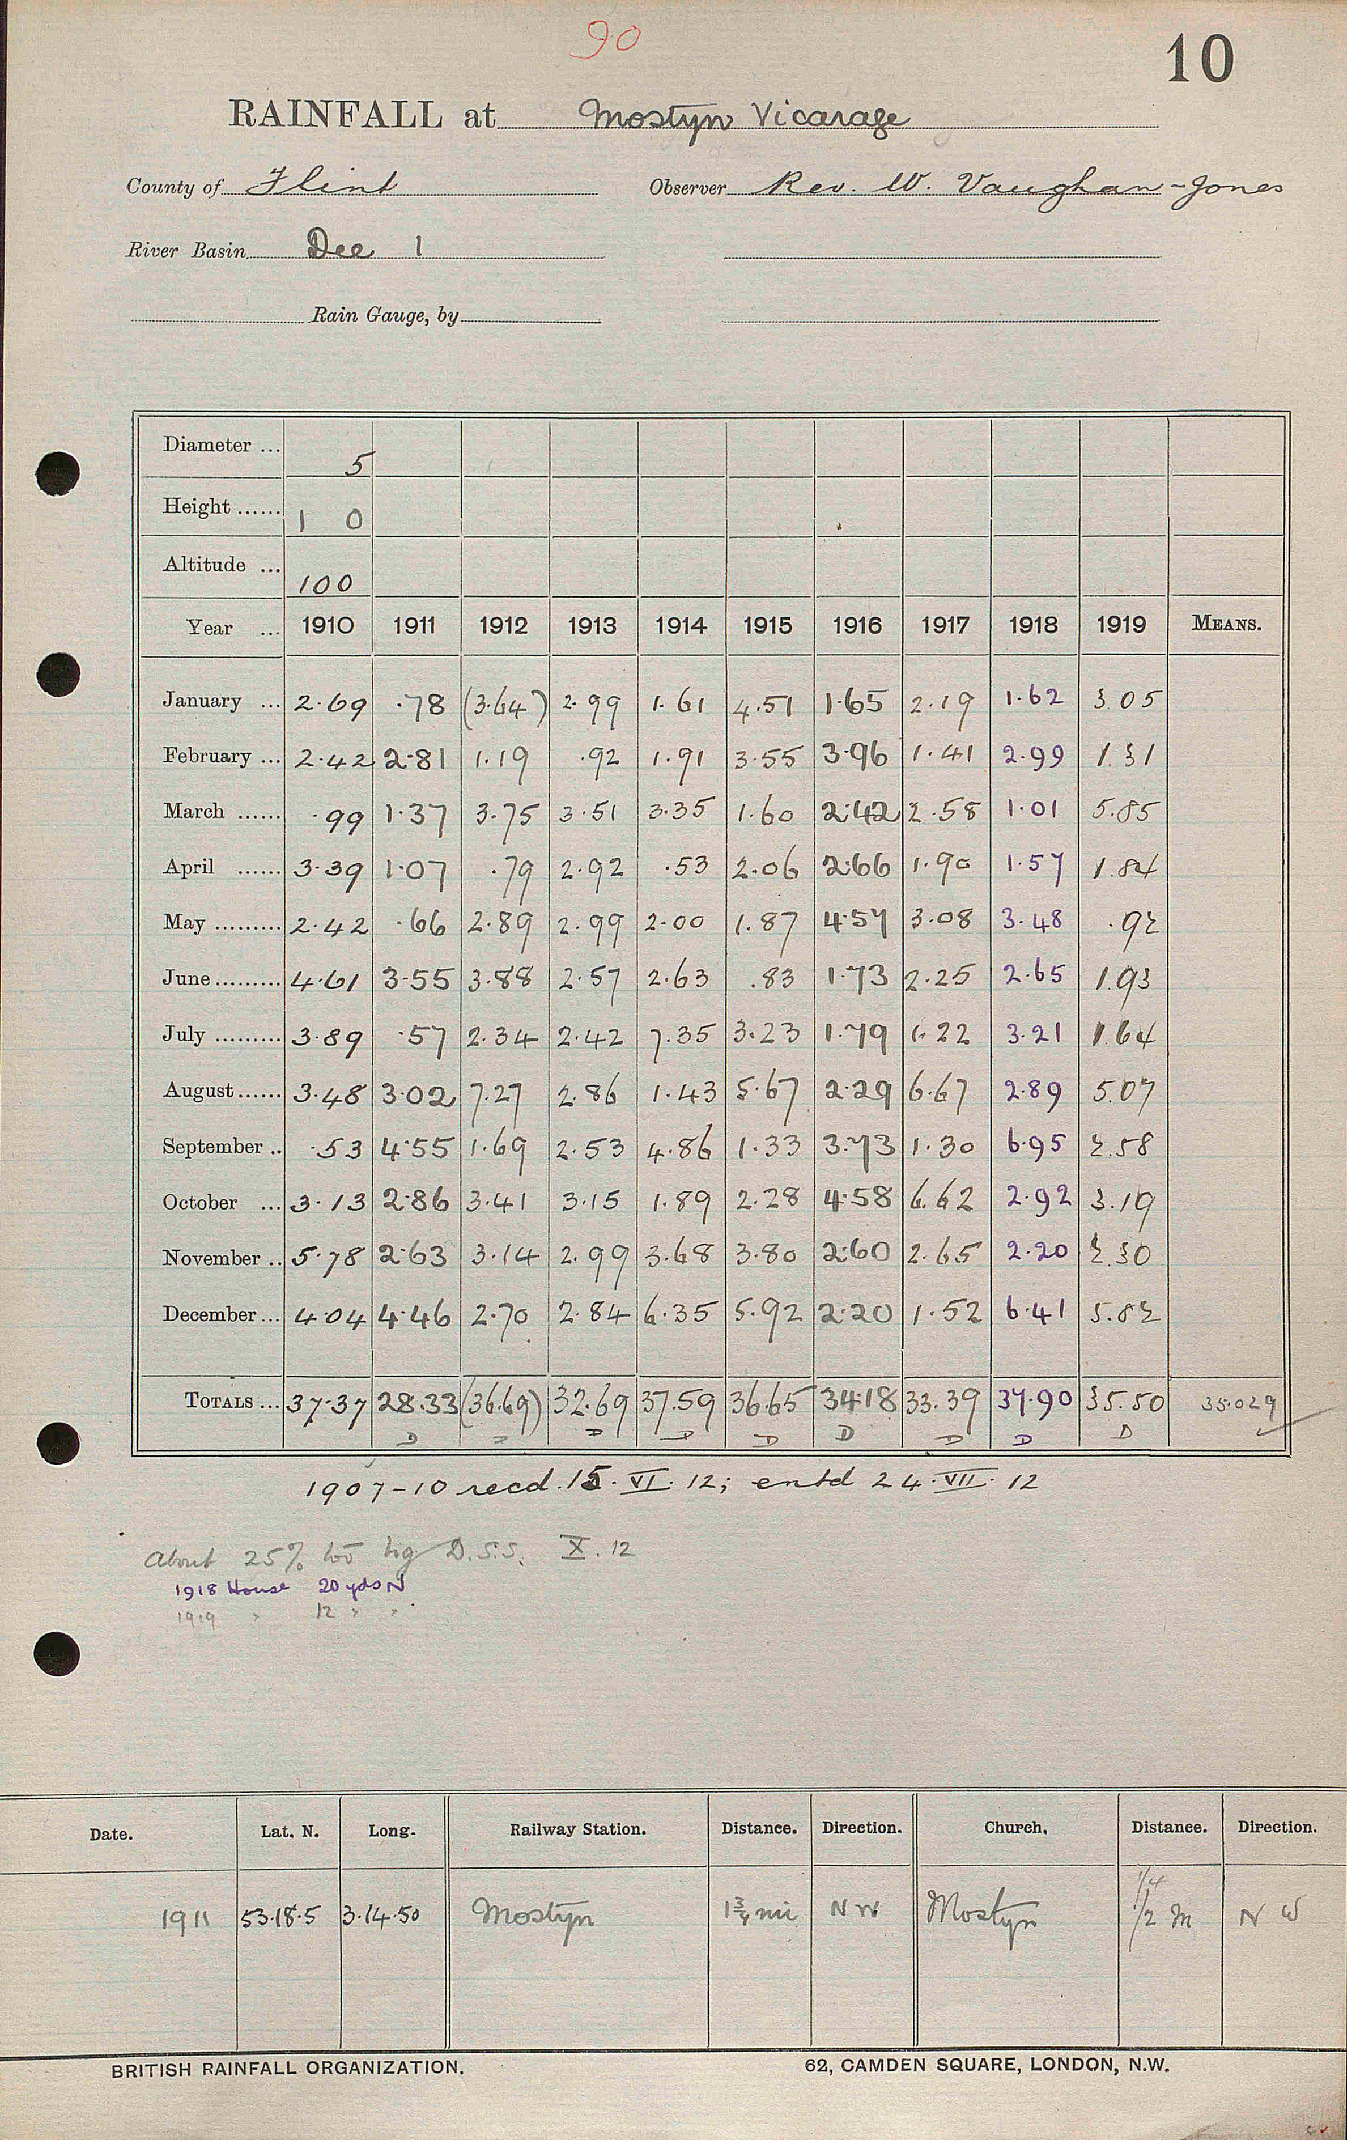 90
10
RAINFALL at Mostyn Vicarage
County of Flint Observer Rev. W. Vaughan-Jones
River Basin Dee 1
Rain Gauge, by
Diameter ... 5
Height ...... 1 0
Altitude ... 100
Year ... 1910 1911 1912 1913 1914 1915 1916 1917 1918 1919 MEANS.
January ... 2.69 .78 (3.64) 2.99 1.61 4.51 1.65 2.19 1.62 3.05
February ... 2.42 2.81 1.19 .92 1.91 3.55 3.96 1.41 2.99 1.31
March ...... .99 1.37 3.75 3.51 3.35 1.60 2.42 2.58 1.01 5.85
April ...... 3.39 1.07 .79 2.92 .53 2.06 2.66 1.90 1.57 1.84
May ......... 2.42 .66 2.89 2.99 2.00 1.87 4.57 3.08 3.48 .92
June ......... 4.61 3.55 3.88 2.57 2.63 .83 1.73 2.25 2.65 1.93
July ......... 3.89 .57 2.34 2.42 7.35 3.23 1.79 1.22 3.21 1.64
August ...... 3.48 3.02 7.27 2.86 1.43 5.67 2.29 6.67 2.89 5.07
September .. .53 4.55 1.69 2.53 4.86 1.33 3.73 1.30 6.95 2.58
October ... 3.13 2.86 3.41 3.15 1.89 2.28 4.58 6.62 2.92 3.19
November .. 5.78 2.63 3.14 2.99 3.68 3.80 2.60 2.65 2.20 2.30
December ... 4.04 4.46 2.70 2.84 6.35 5.92 2.20 1.52 6.41 5.82
TOTALS ... 37.37 28.33 (36.69) 32.69 37.59 36.65 34.18 33.39 37.90 35.50 35.029
D D D D D D D D D
1907-10 recd. 15. VI. 12; entd 24. VII. 12
About 25% too big D.S.S. X. 12
1918 House 20 yds N
1919 " 12 " "
Date. Lat. N. Long. Railway Station. Distance. Direction. Church. Distance. Direction.
1/4
1911 53.18.5 3.14.50 Mostyn 1 3/4 mi NW Mostyn 1/2 m NW
BRITISH RAINFALL ORGANIZATION. 62, CAMDEN SQUARE, LONDON, N.W.